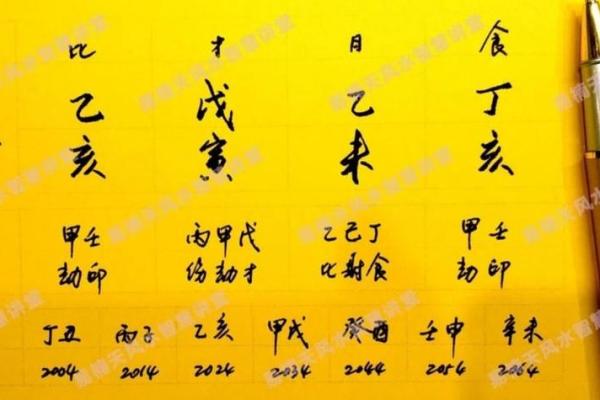 比 才 日 食
乙 戊 乙 丁
亥 寅 未 亥
甲壬 丙甲戊 乙己丁 甲壬
劫印 伤劫才 比财食 劫印
丁丑 丙子 乙亥 甲戌 癸酉 壬申 辛未
2004 2014 2024 2034 2044 2054 2064